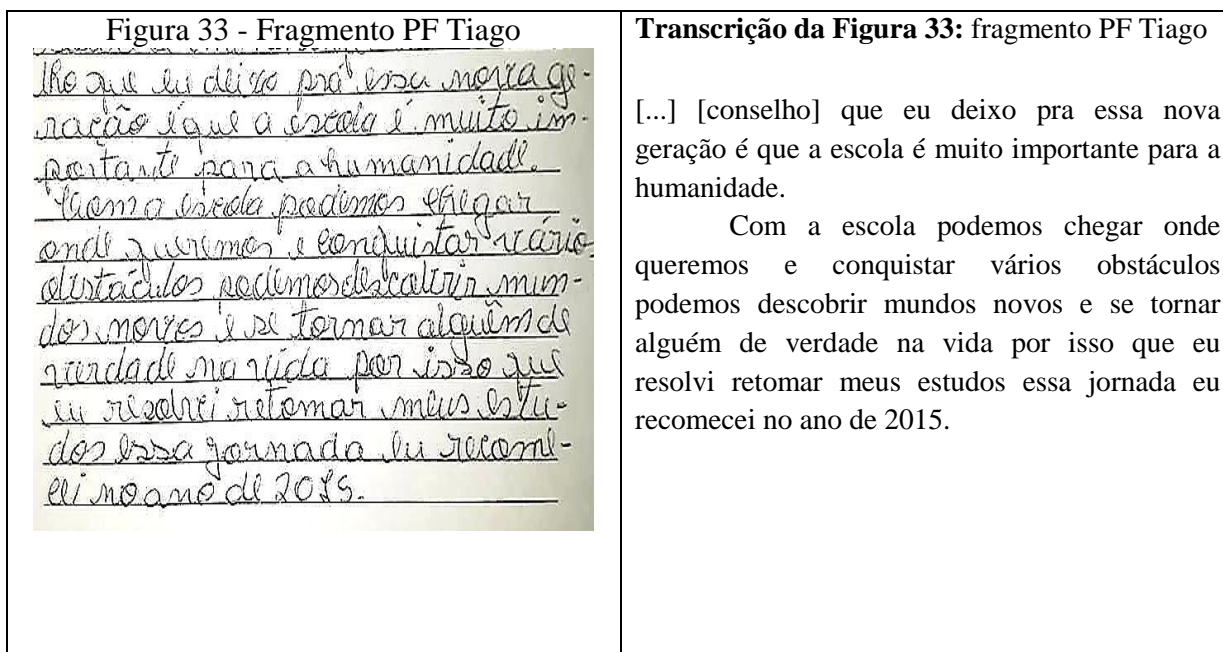 Figura 33 - Fragmento PF Tiago
lho que eu deixo pra essa nova ge-
ração é que a escola é muito im-
portante para a humanidade.
Com a escola podemos chegar
onde queremos e conquistar vário
obstáculos podemos descobrir mun-
dos novos e se tornar alguém de
verdade na vida por isso que
eu resolvi retomar meus estu-
dos essa jornada eu recome-
cei no ano de 2015.
Transcrição da Figura 33: fragmento PF Tiago
[...] [conselho] que eu deixo pra essa nova
geração é que a escola é muito importante para a
humanidade.
Com a escola podemos chegar onde
queremos e conquistar vários obstáculos
podemos descobrir mundos novos e se tornar
alguém de verdade na vida por isso que eu
resolvi retomar meus estudos essa jornada eu
recomecei no ano de 2015.